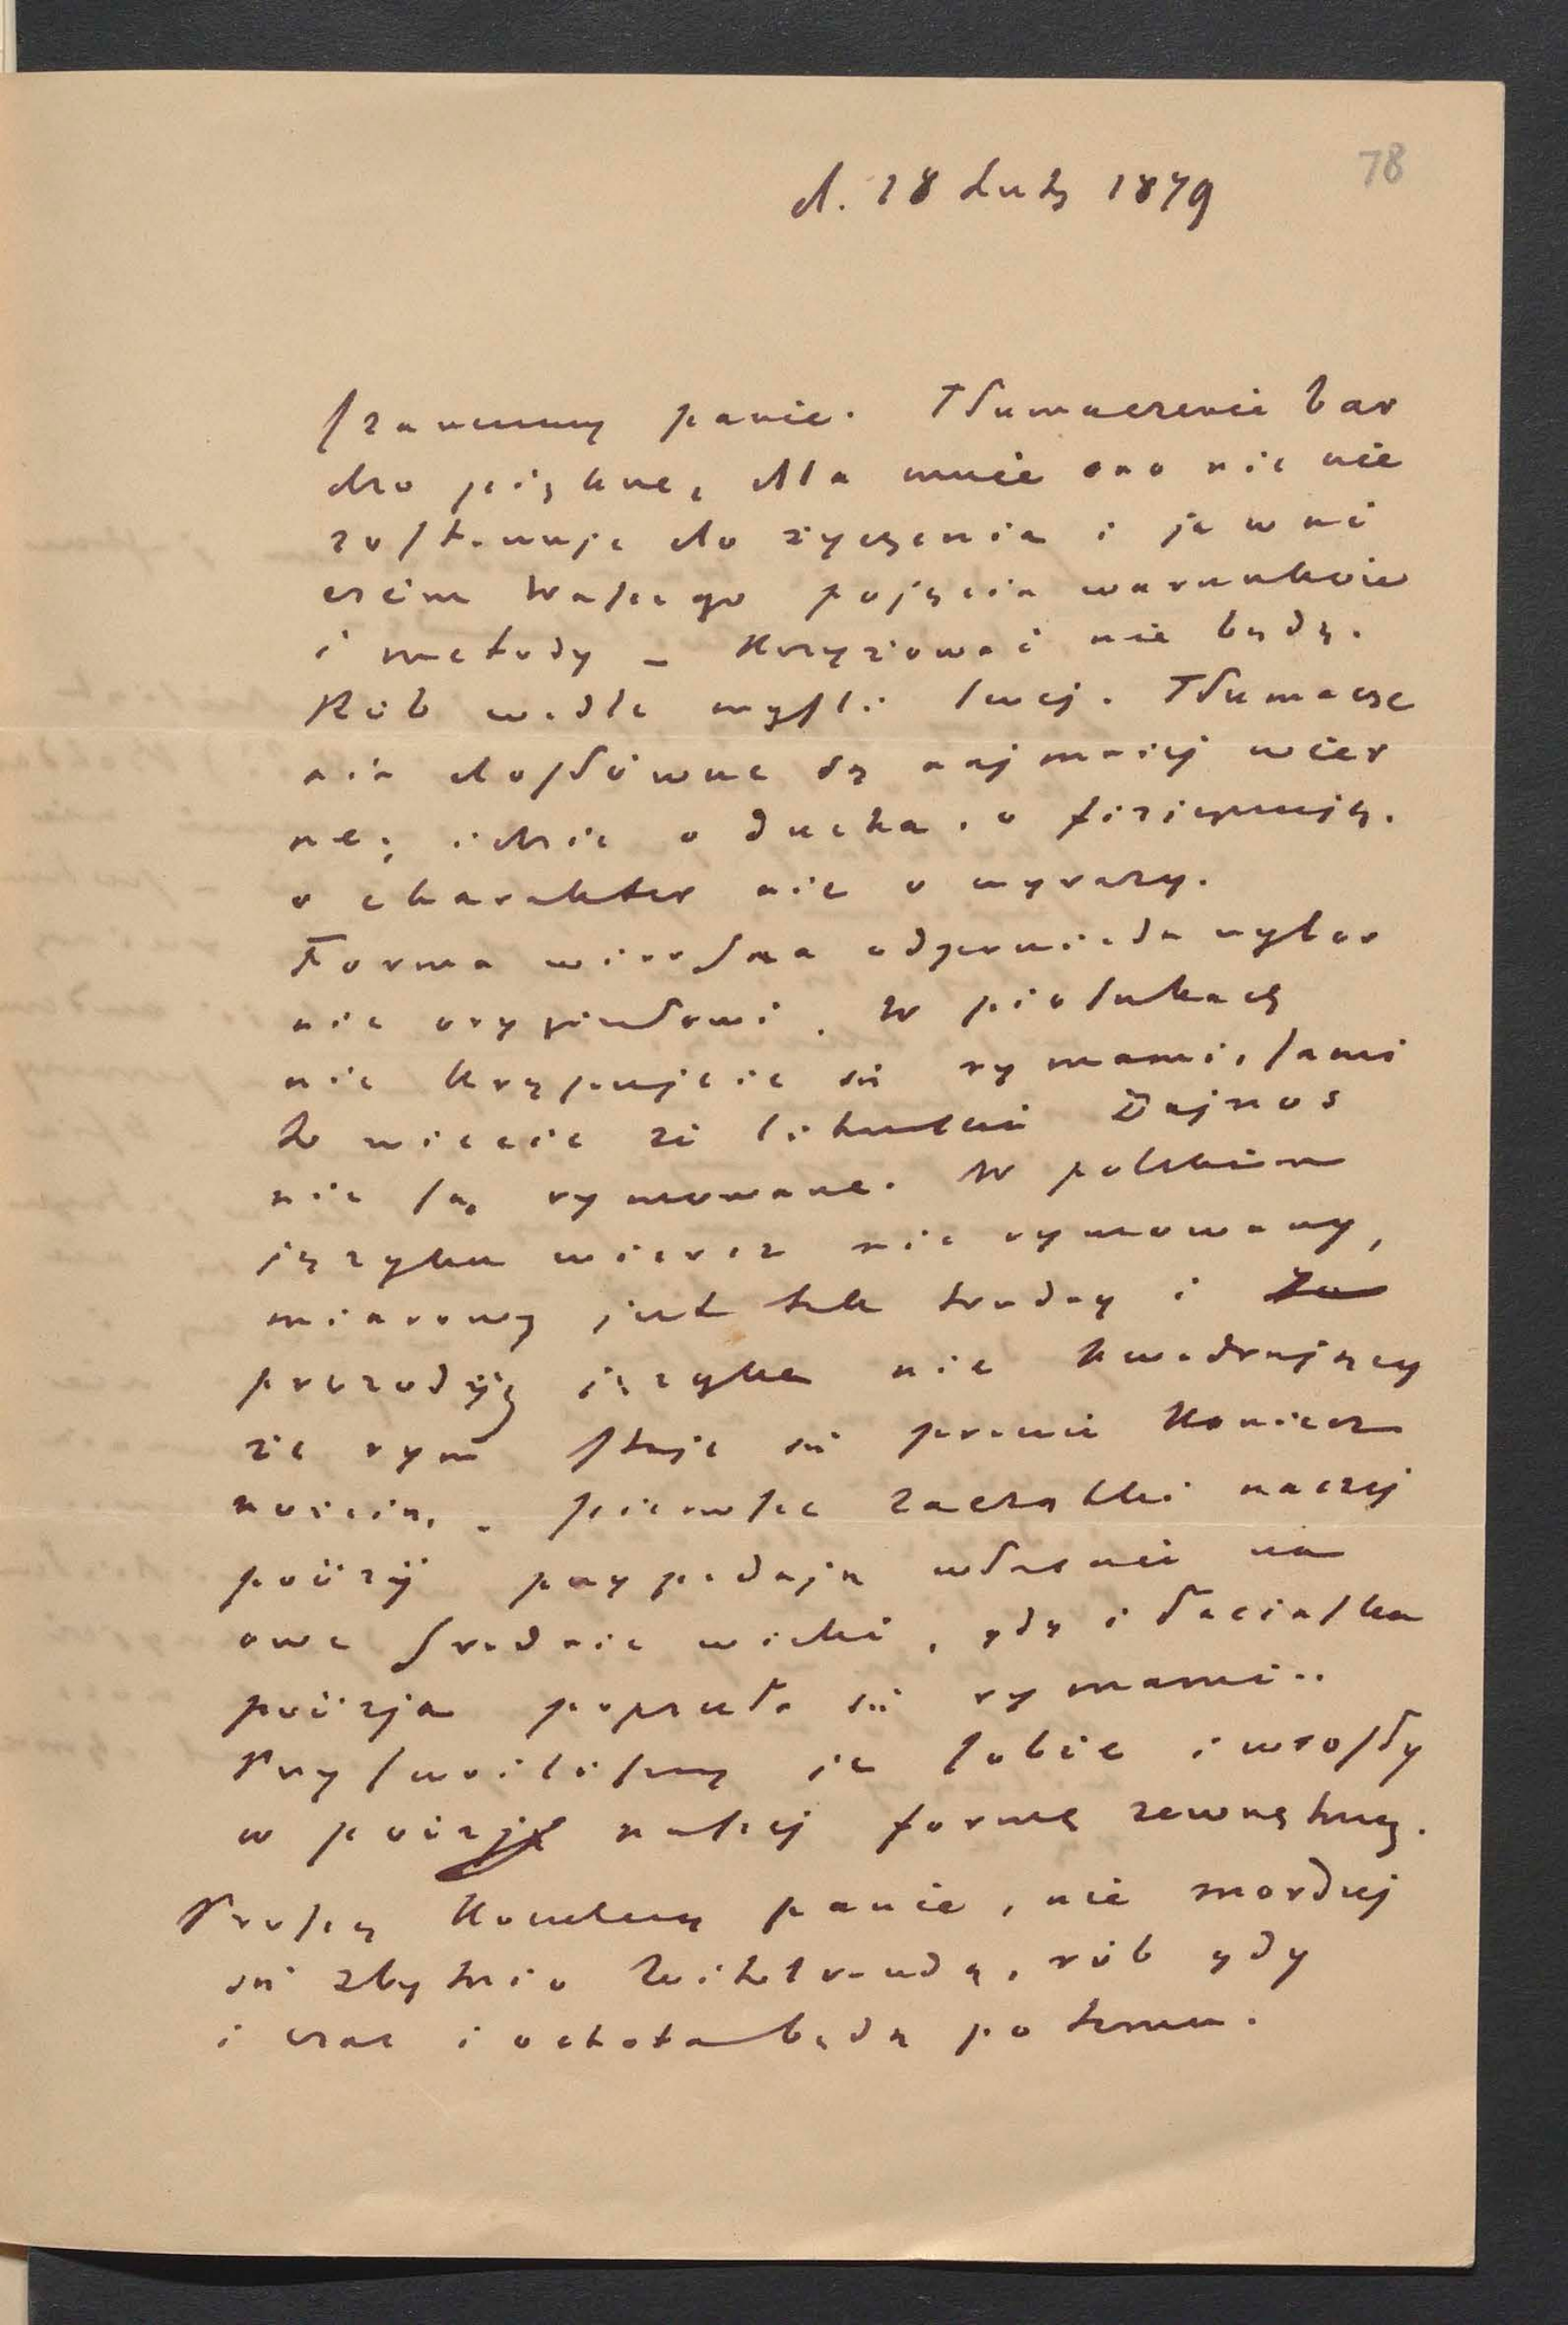 78
d. 28 Lut 1879
Szanowny panie. Tłumaczenie bar
dzo piękne, dla mnie ono nic nie
zostawuje do życzenia i je w ni
czem Waszego pojęcia warunków
i metody – Krzyżować nie będę.
Rób wedle myśli swej. Tłumacze
nia dosłowne są najmniej wier
ne; idzie o ducha, o fizjognomję,
o charakter nie o wyrazy.
Forma wierszna odpowiada wybor
nie oryginałowi. W piosnkach
nie krępujcie się rymami, sami
to wiecie że litewskie Dajnos
nie są rymowane. W polskim
języku wiersz nie rymowany,
miarowy jest tak trudny i za
prozodyą języka nie kwadrujący
że rym staje się prawie koniecz
nością. Pierwsze zaczątki naszej
poézij przypadają właśnie na
owe średnie wieki, gdy i łacińska
poézja popsuła się rymami..
Przyswoiliśmy je sobie i wrosły
w poézję naszej formę zewnętrzną.
Proszę Kochany panie, nie morduj
się zbytnio Witoloraudą, rób gdy
i czas i ochota będą po temu.